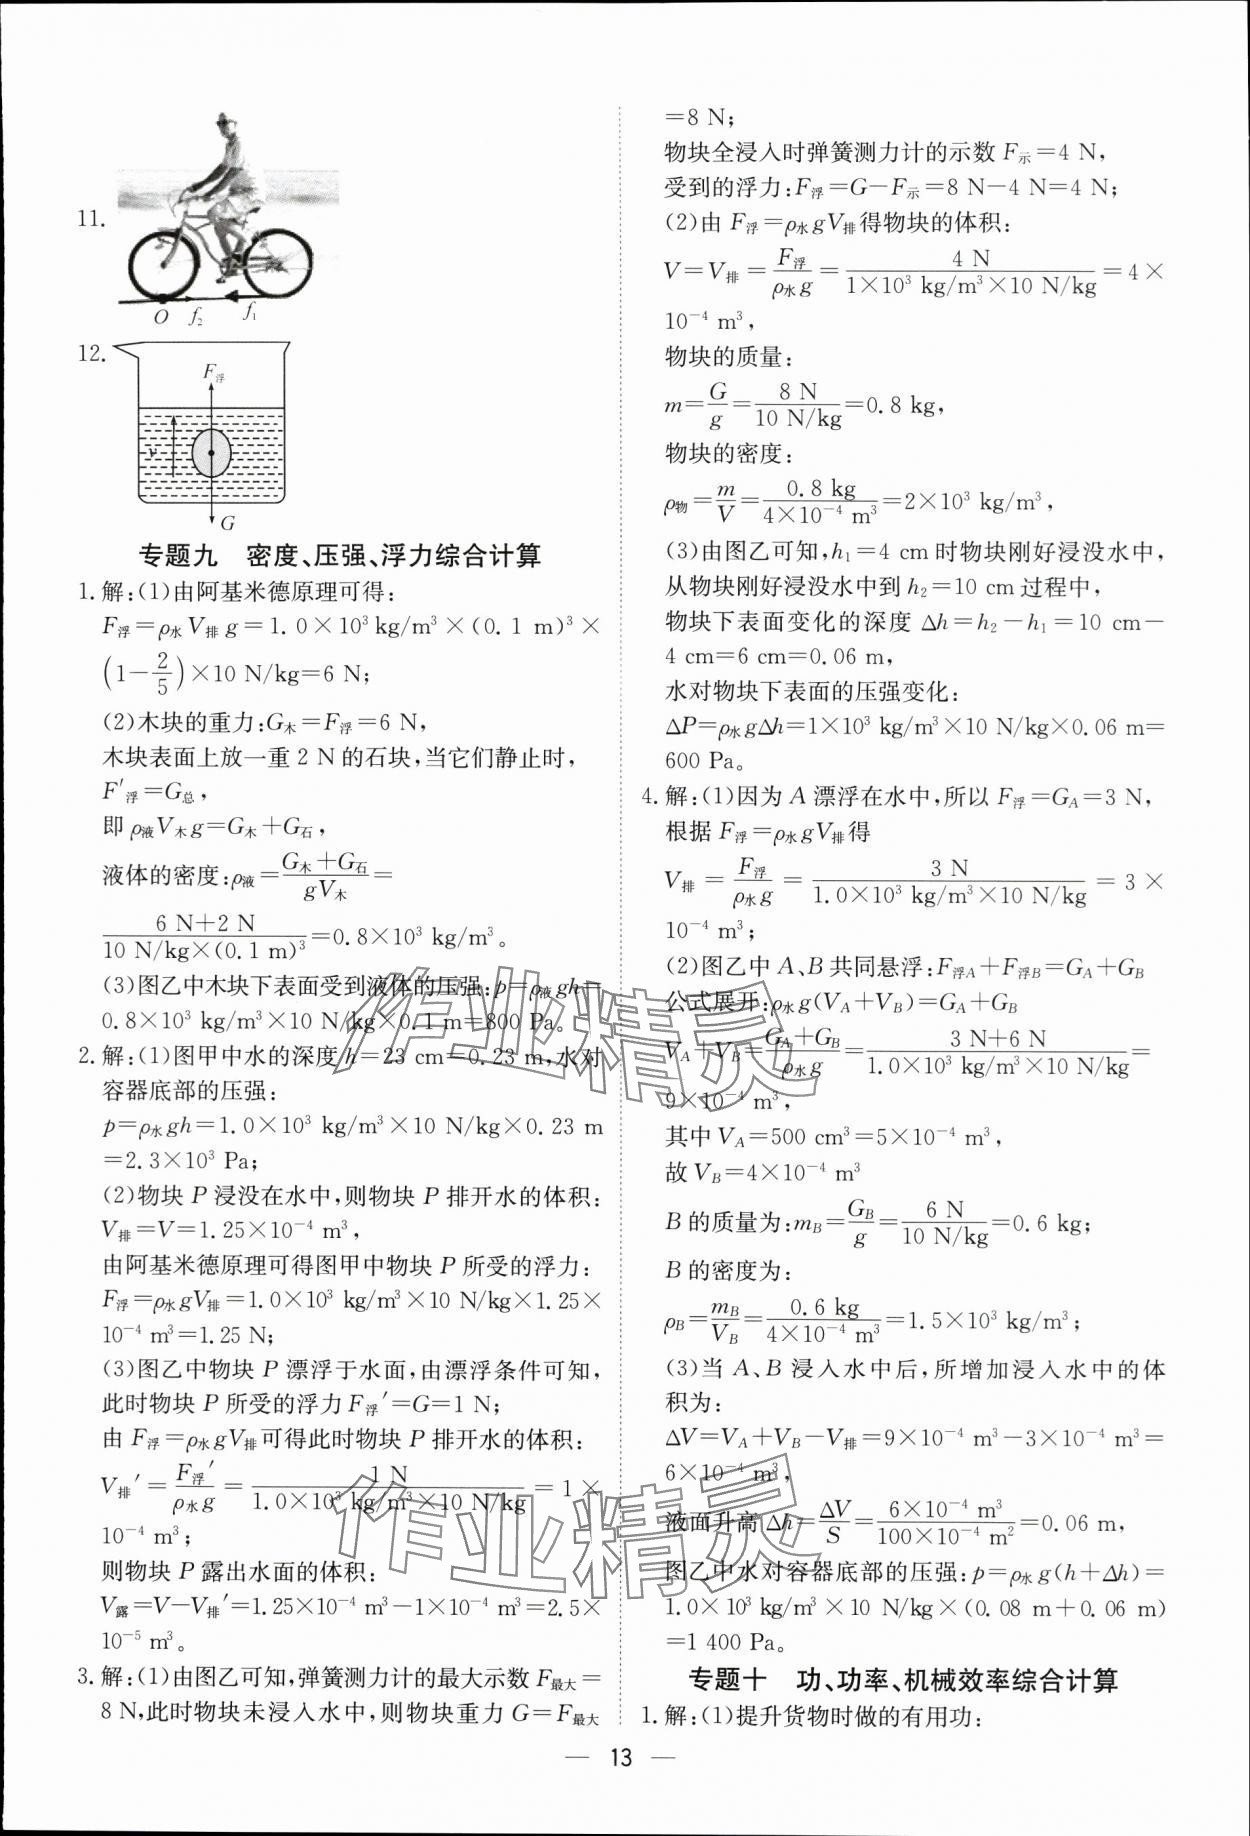 11.
O f₂ f₁
12.
F浮
v
G
专题九 密度、压强、浮力综合计算
1. 解:(1)由阿基米德原理可得:
F浮=ρ水V排g=1.0×10³ kg/m³×(0.1 m)³×
(1-2/5)×10 N/kg=6 N;
(2)木块的重力:G木=F浮=6 N,
木块表面上放一重 2 N 的石块,当它们静止时,
F′浮=G总,
即 ρ液V木g=G木+G石,
液体的密度:ρ液=(G木+G石)/(gV木)=
(6 N+2 N)/(10 N/kg×(0.1 m)³)=0.8×10³ kg/m³。
(3)图乙中木块下表面受到液体的压强:p=ρ液gh=
0.8×10³ kg/m³×10 N/kg×0.1 m=800 Pa。
2. 解:(1)图甲中水的深度 h=23 cm=0.23 m,水对
容器底部的压强:
p=ρ水gh=1.0×10³ kg/m³×10 N/kg×0.23 m
=2.3×10³ Pa;
(2)物块 P 浸没在水中,则物块 P 排开水的体积:
V排=V=1.25×10⁻⁴ m³,
由阿基米德原理可得图甲中物块 P 所受的浮力:
F浮=ρ水gV排=1.0×10³ kg/m³×10 N/kg×1.25×
10⁻⁴ m³=1.25 N;
(3)图乙中物块 P 漂浮于水面,由漂浮条件可知,
此时物块 P 所受的浮力 F浮′=G=1 N;
由 F浮=ρ水gV排可得此时物块 P 排开水的体积:
V排′=F浮′/(ρ水g)=1 N/(1.0×10³ kg/m³×10 N/kg)=1×
10⁻⁴ m³;
则物块 P 露出水面的体积:
V露=V-V排′=1.25×10⁻⁴ m³-1×10⁻⁴ m³=2.5×
10⁻⁵ m³。
3. 解:(1)由图乙可知,弹簧测力计的最大示数 F最大=
8 N,此时物块未浸入水中,则物块重力 G=F最大
=8 N;
物块全浸入时弹簧测力计的示数 F示=4 N,
受到的浮力:F浮=G-F示=8 N-4 N=4 N;
(2)由 F浮=ρ水gV排得物块的体积:
V=V排=F浮/(ρ水g)=4 N/(1×10³ kg/m³×10 N/kg)=4×
10⁻⁴ m³,
物块的质量:
m=G/g=8 N/(10 N/kg)=0.8 kg,
物块的密度:
ρ物=m/V=0.8 kg/(4×10⁻⁴ m³)=2×10³ kg/m³,
(3)由图乙可知,h₁=4 cm时物块刚好浸没水中,
从物块刚好浸没水中到 h₂=10 cm过程中,
物块下表面变化的深度 Δh=h₂-h₁=10 cm-
4 cm=6 cm=0.06 m,
水对物块下表面的压强变化:
ΔP=ρ水gΔh=1×10³ kg/m³×10 N/kg×0.06 m=
600 Pa。
4. 解:(1)因为 A 漂浮在水中,所以 F浮=G_A=3 N,
根据 F浮=ρ水gV排得
V排=F浮/(ρ水g)=3 N/(1.0×10³ kg/m³×10 N/kg)=3×
10⁻⁴ m³;
(2)图乙中 A、B 共同悬浮:F浮A+F浮B=G_A+G_B
公式展开:ρ水g(V_A+V_B)=G_A+G_B
V_A+V_B=(G_A+G_B)/(ρ水g)=(3 N+6 N)/(1.0×10³ kg/m³×10 N/kg)=
9×10⁻⁴ m³,
其中 V_A=500 cm³=5×10⁻⁴ m³,
故 V_B=4×10⁻⁴ m³
B 的质量为:m_B=G_B/g=6 N/(10 N/kg)=0.6 kg;
B 的密度为:
ρ_B=m_B/V_B=0.6 kg/(4×10⁻⁴ m³)=1.5×10³ kg/m³;
(3)当 A、B 浸入水中后,所增加浸入水中的体
积为:
ΔV=V_A+V_B-V排=9×10⁻⁴ m³-3×10⁻⁴ m³=
6×10⁻⁴ m³,
液面升高 Δh=ΔV/S=6×10⁻⁴ m³/(100×10⁻⁴ m²)=0.06 m,
图乙中水对容器底部的压强:p=ρ水g(h+Δh)=
1.0×10³ kg/m³×10 N/kg×(0.08 m+0.06 m)
=1 400 Pa。
专题十 功、功率、机械效率综合计算
1. 解:(1)提升货物时做的有用功:
— 13 —
作业精灵
作业精灵